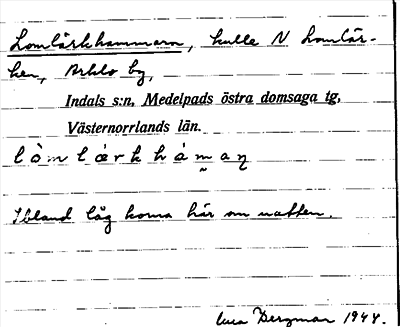 Lomlärkhammarn, kulle N Lomlär-
ken, Arklo by,
Indals s:n, Medelpads östra domsaga tg,
Västernorrlands län.
l ò m l æ r k h à m a ɳ
Ibland låg korna här om natten.
Bergman 1948.